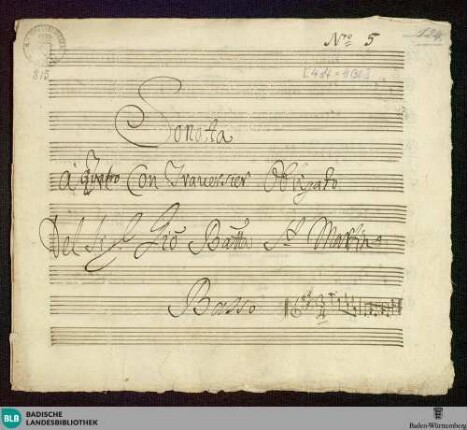 Nro 5
815
Sonata
à Quatro Con Traversier Obligato
Del Sigl Gio Batta St Martin
Basso
BLB BADISCHE
LANDESBIBLIOTHEK
Baden-Württemberg